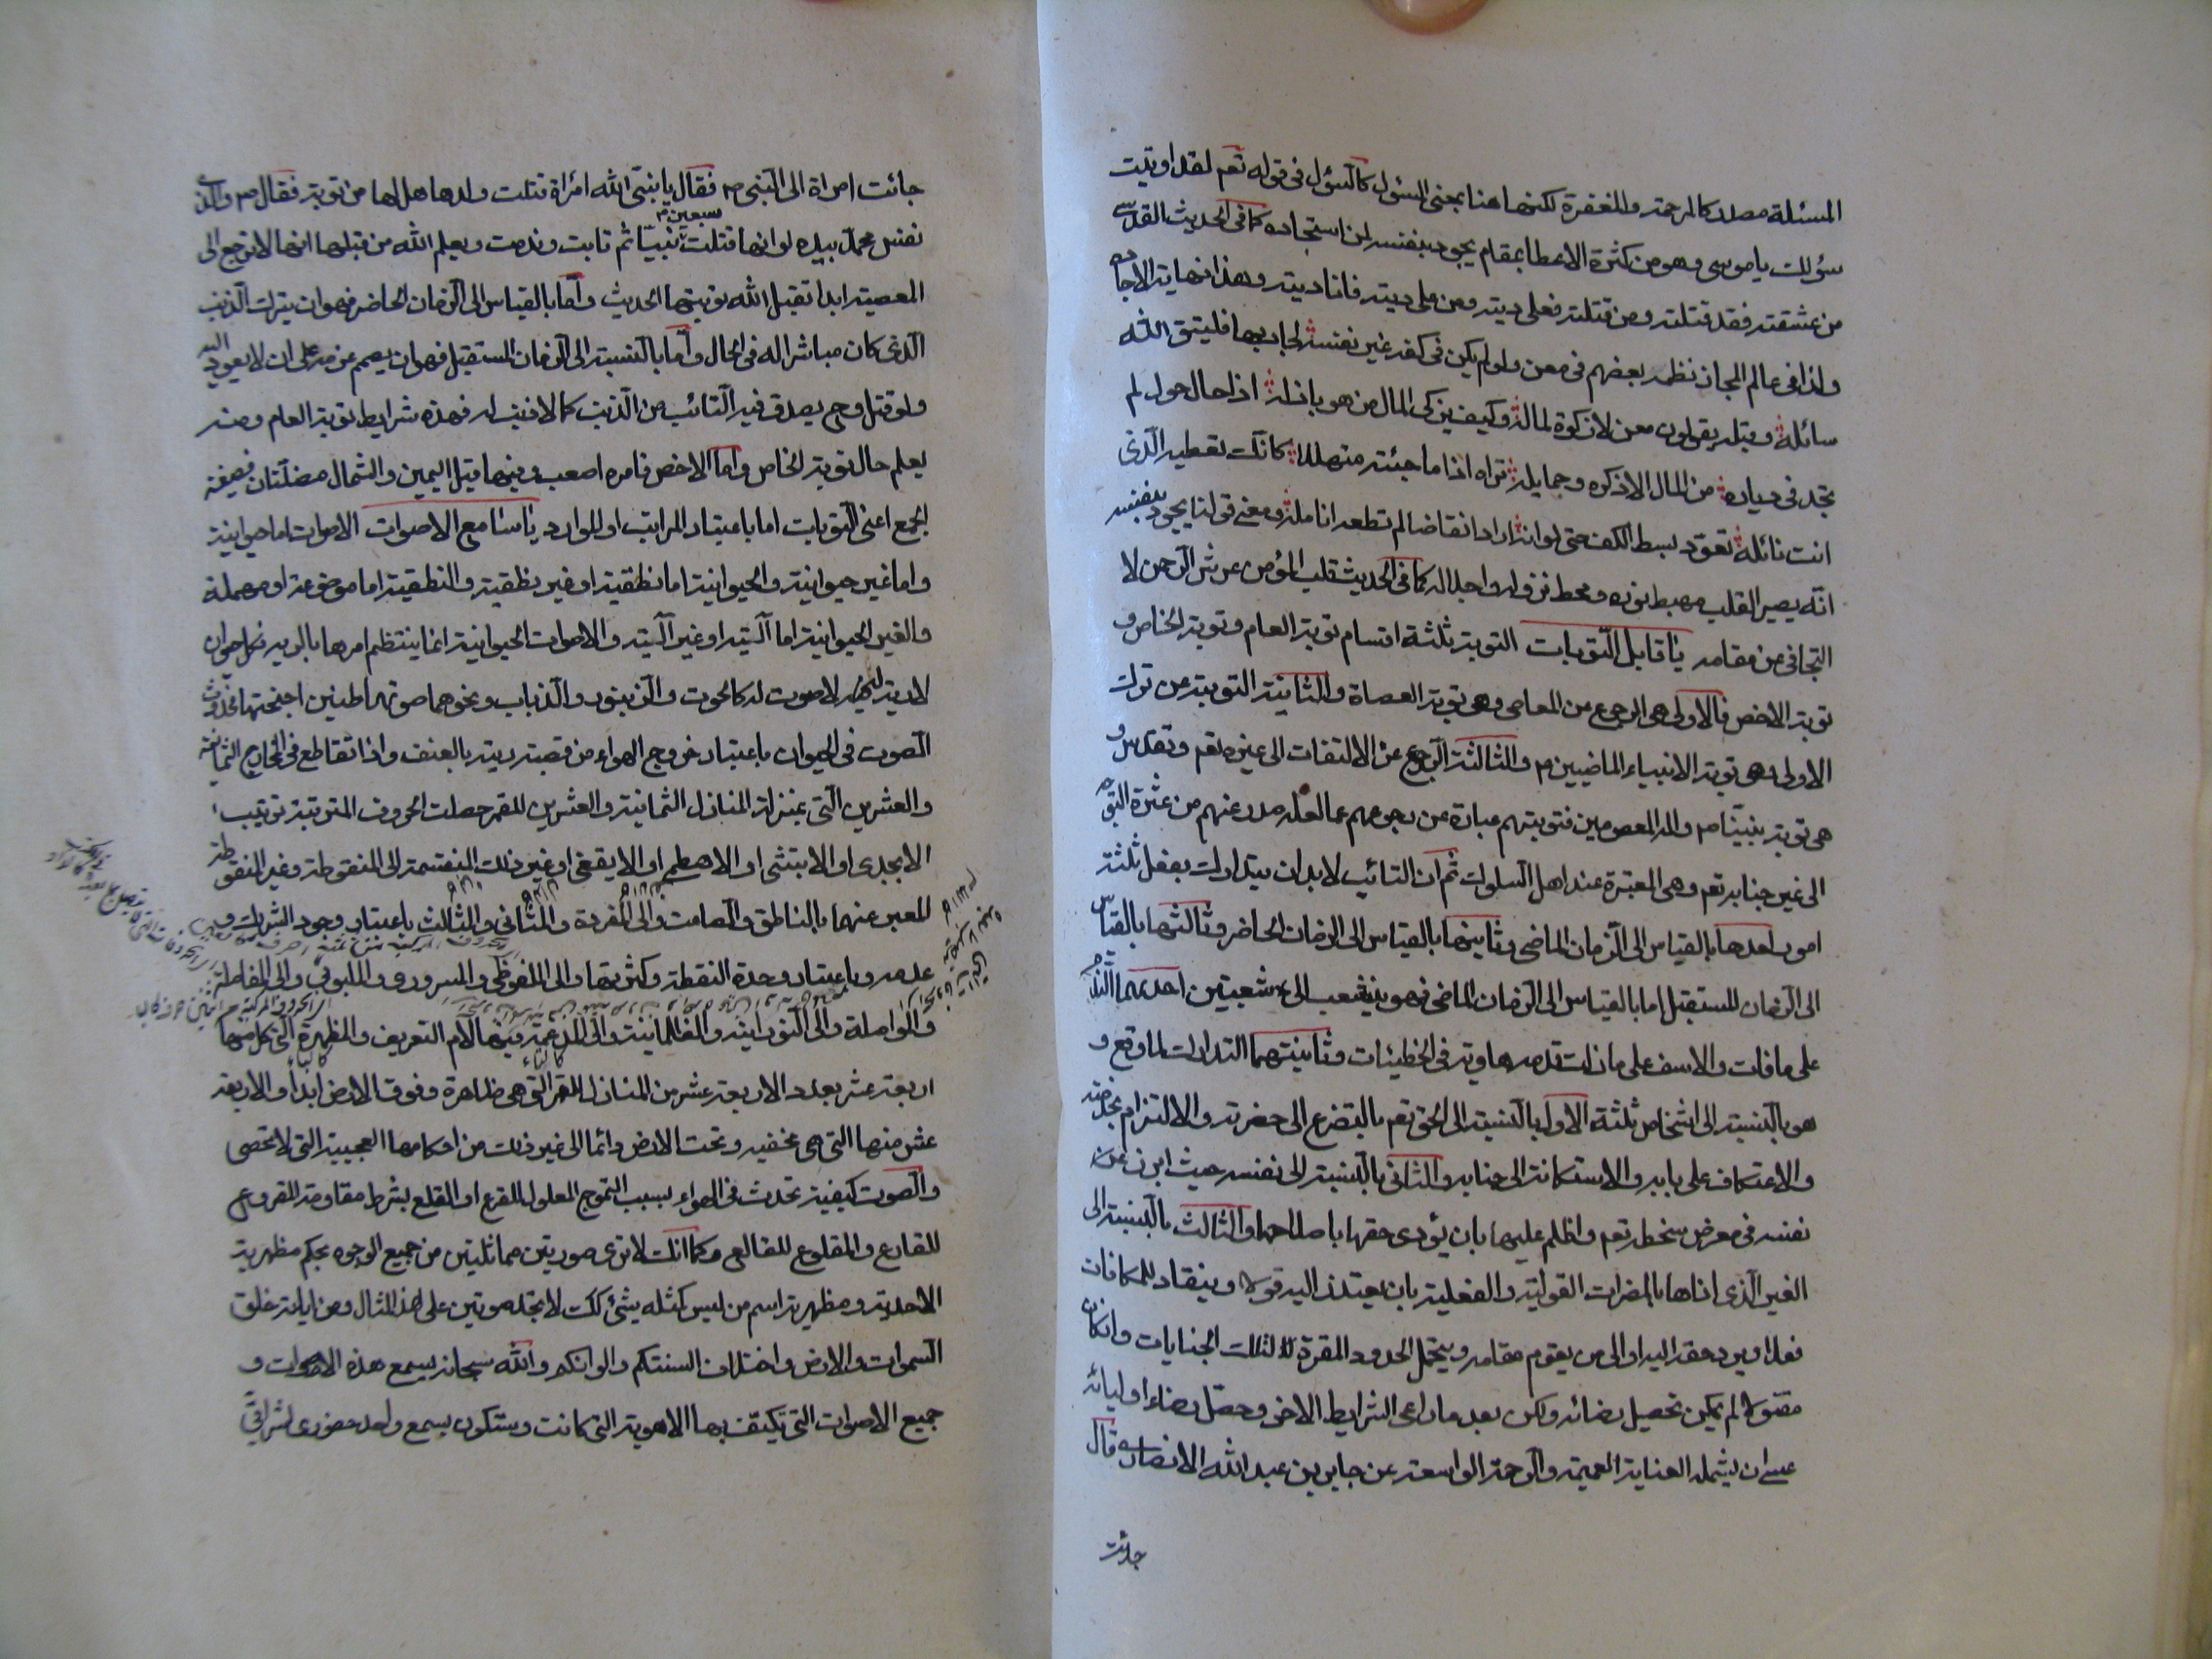 المسئلة مصدر كالمرحمة والمغفرة لكنها هنا بمعنى المسئول كالسؤل فى قوله تعم لقد اوتيت
سؤلك يا موسى وهو من كثرة الاعطا بمقام يجود بنفسه لمن استجاده كما فى الحديث القدسى
من عشقته فقد قتلته ومن قتلته فعلى ديته ومن على ديته فانا ديته وهذا نهاية الاجا
ولذا فى عالم المجاز نظم بعضهم فى معن ولو لم يكن فى كفه غير نفسه لجاد بها فليتق الله
سائله وقيله يقولون معن لا زكوة لماله وكيف يزكى المال من هو باذله اذا حال حول لم
تجد فى دياره من المال الا ذكره وجمايله تراه اذا ما جئته متهللا كانك تعطيه الذى
انت نائله تعود بسط الكف حتى لو انه اراد انقاضا لم تطعه انامله ومعنى قولنا يجود بنفسه
انه يصير القلب مهبط نوره ومحط نزول اجلاله كما فى الحديث قلب المؤمن عرش الرحمن لا
التجافى من مقامه يا قابل التوبات التوبة ثلثة اقسام توبة العام وتوبة الخاص و
توبة الاخص فالاولى هى الرجوع من المعاصى وهى توبة العصاة والثانية التوبة عن ترك
الاولى وهى توبة الانبياء الماضيين م والثالثة الرجوع عن الالتفات الى غيره تعم وتقدس و
هى توبة نبينا ص واله المعصومين فتوبتهم عبارة عن رجوعهم عما لعله صدر عنهم من عثرة التوجه
الى غير جنابه تعم وهى المعتبرة عند اهل السلوك ثم ان التائب لابد ان يتدارك بفعل ثلثة
امور احدها بالقياس الى الزمان الماضى وثانيها بالقياس الى الزمان الحاضر وثالثها بالقياس
الى الزمان المستقبل اما بالقياس الى الزمان الماضى فهو ينشعب الى شعبتين احدهما الندم
على ما فات والاسف على ما زلت قدمه هاوية فى الخطيئات وثانيتهما التدارك لما وقع و
هو بالنسبة الى اشخاص ثلثة الاول بالنسبة الى الحق تعم بالتضرع الى حضرته والالتزام بخدمته
والاعتكاف على بابه والاستكانة الى جنابه والثانى بالنسبة الى نفسه حيث ابرز عن
نفسه فى معرض سخطه تعم واظلم عليها بان يؤدى حقها باصلاحها والثالث بالنسبة الى
الغير الذى اذاها بالمضرات القولية والفعلية بان يعتذر اليه قولا وينقاد للمكافات
فعلا ويرد حقه اليه او الى من يقوم مقامه ويتحمل الحدود المقررة لتلك الجنايات وان كان
مقتولا لم يمكن تحصيل رضائه ولكن بعد ما راعى الشرايط الاخر وحصل رضاء اوليائه
عسى ان يشمله العناية العميمة والرحمة الواسعة عن جابر بن عبد الله الانصارى قال
جائت
جائت امراة الى النبى ص فقال يا نبى الله امراة قتلت ولدها هل لها من توبة فقال ص والذى
نفس محمد بيده لو انها قتلت سبعين نبيا ثم تابت وندمت ويعلم الله من قبلها انها لا ترجع الى
المعصية ابدا تقبل الله توبتها الحديث واما بالقياس الى الزمان الحاضر فهو ان يترك الذنب
الذى كان مباشرا له فى الحال واما بالنسبة الى الزمان المستقبل فهو ان يصمم عزمه على ان لا يعود اليه
ولو قتل وح يصدق فيه التائب من الذنب كما لا ذنب له فهذه شرايط توبة العام ومنه
يعلم حال توبة الخاص واما الاخص فامره اصعب وفيها قيل اليمين والشمال مضلتان فصيغة
الجمع اعنى التوبات اما باعتبار المراتب او الموارد يا سامع الاصوات الاصوات اما حيوانية
واما غير حيوانية والحيوانية اما نطقية او غير نطقية والنطقية اما موضوعة او مهملة
والغير الحيوانية اما آلية او غير آلية والاصوات الحيوانية انما ينتظم امرها بالرية فكل حيوان
لا رية له لا صوت له كالحوت والزنبور والذباب ونحوهما صوتها طنين اجنحتها فحدوث
الصوت فى الحيوان باعتبار خروج الهواء من قصبة رية بالعنف واذا تقاطع فى المخارج الثمانية
والعشرين التى بمنزلة المنازل الثمانية والعشرين للقمر حصلت الحروف المترتبة ترتيب
الابجدى او الابتثى او الاهطم او الايقغى او غير ذلك المنقسمة الى المنقوطة وغير المنقوطة
المعبر عنهما بالناطق والصامت والى المفردة والمثانى والثالث باعتبار وجود الشريك و
عدمه وباعتبار وحدة النقطة وكثرتها والى الملفوظى والمسرورى والملبوبى والى الفاصلة
والواصلة والى النورانية والظلمانية والى المدغمة فيها لام التعريف والمظهرة التى كل منها
اربعة عشر بعدد الاربعة عشر من المنازل القمر التى هى ظاهرة وفوق الارض ابدا والاربعة
عشر منها التى هى مخفية وتحت الارض دائما الى غير ذلك من احكامها العجيبة التى لا تحصى
والصوت كيفية تحدث فى الهواء بسبب التموج المعلول للقرع او القلع بشرط مقاومة المقروع
للقارع والمقلوع للقالع وكما انك لا ترى صورتين مماثلتين من جميع الوجوه بحكم مظهرية
الاحدية ومظهرية اسم من ليس كمثله شئ كك لا تجد صوتين على هذا المثال ومن اياته خلق
السموات والارض واختلاف السنتكم والوانكم والله سبحانه يسمع هذه الاصوات و
جميع الاصوات التى تكيف بها الاهوية التى كانت وستكون بسمع واحد حضورى اشراقى